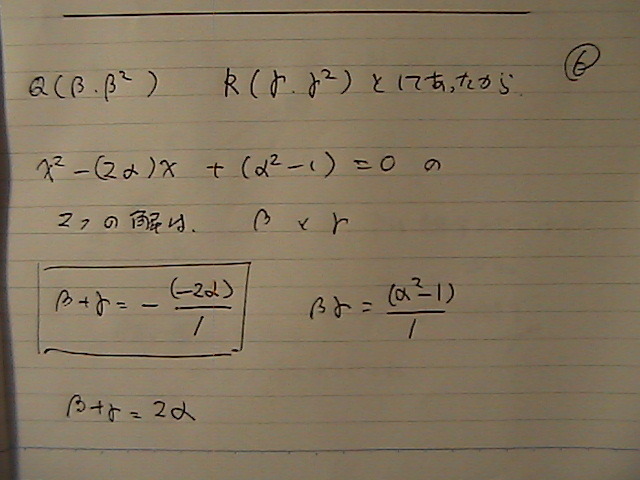 Q(β.β²) R(γ.γ²) としてあったから. ⑥
x²-(2α)x + (α²-1) = 0 の
2つの解は. β と γ
β+γ = - (-2α)/1 βγ = (α²-1)/1
β+γ = 2α